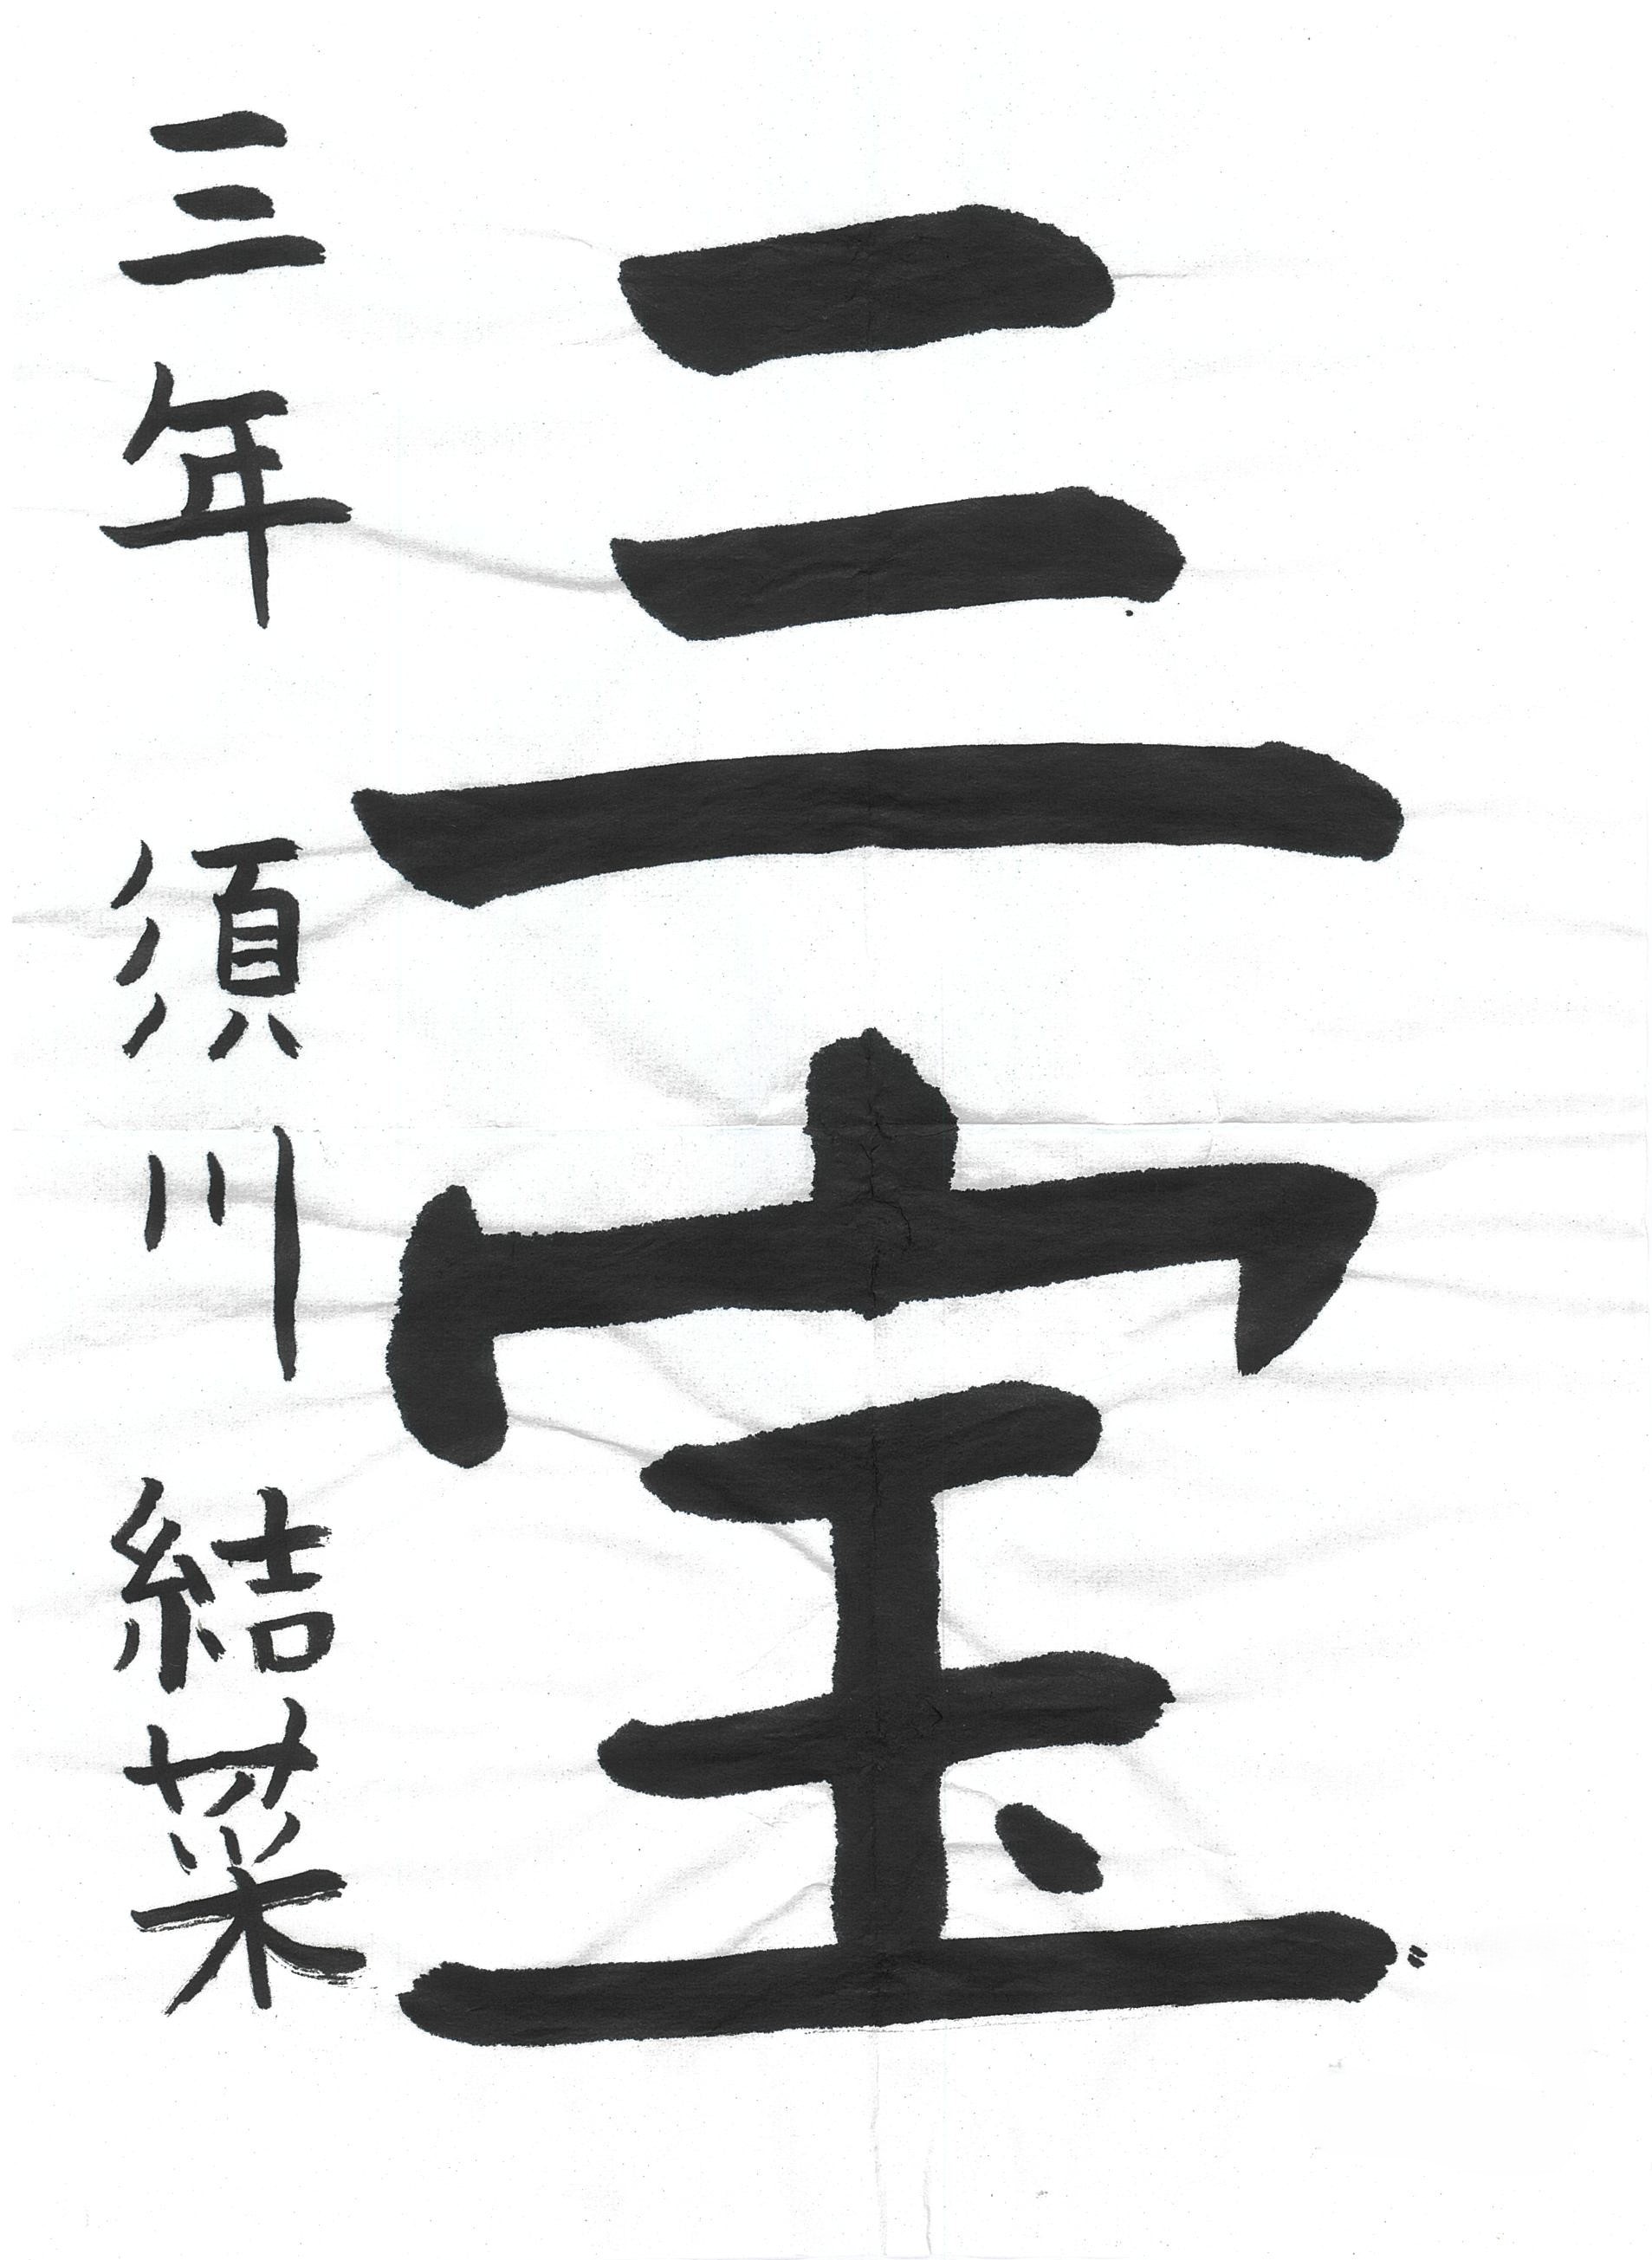 三宝
三年 須川 結菜